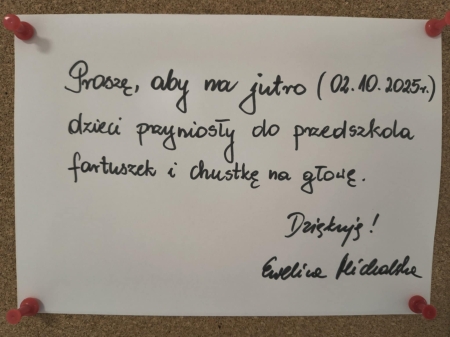 Proszę, aby na jutro (02.10.2025r.)
dzieci przyniosły do przedszkola
fartuszek i chustkę na głowę.
Dziękuję!
Ewelina Michalska